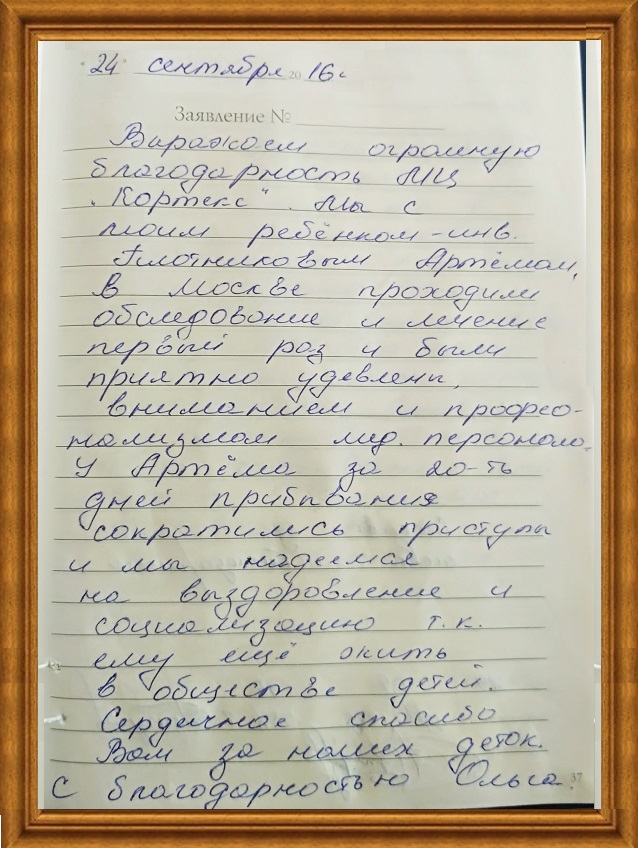 24 сентября 2016 г
Заявление №
Выражаем огромную
благодарность МЦ
"Кортекс". Мы с
моим ребёнком-инв.
Плотниковым Артёмом,
в Москве проходим
обследование и лечение
первый раз и были
приятно удевлены,
вниманием и профео-
нализмом мед. персонала.
У Артёма за 20-ть
дней прибывания
сократились приступы
и мы надеемся
на выздоровление и
социализацию т.к.
ему ещё жить
в обществе детей.
Сердечное спасибо
Вам за наших деток.
С благодарностью Ольга
37